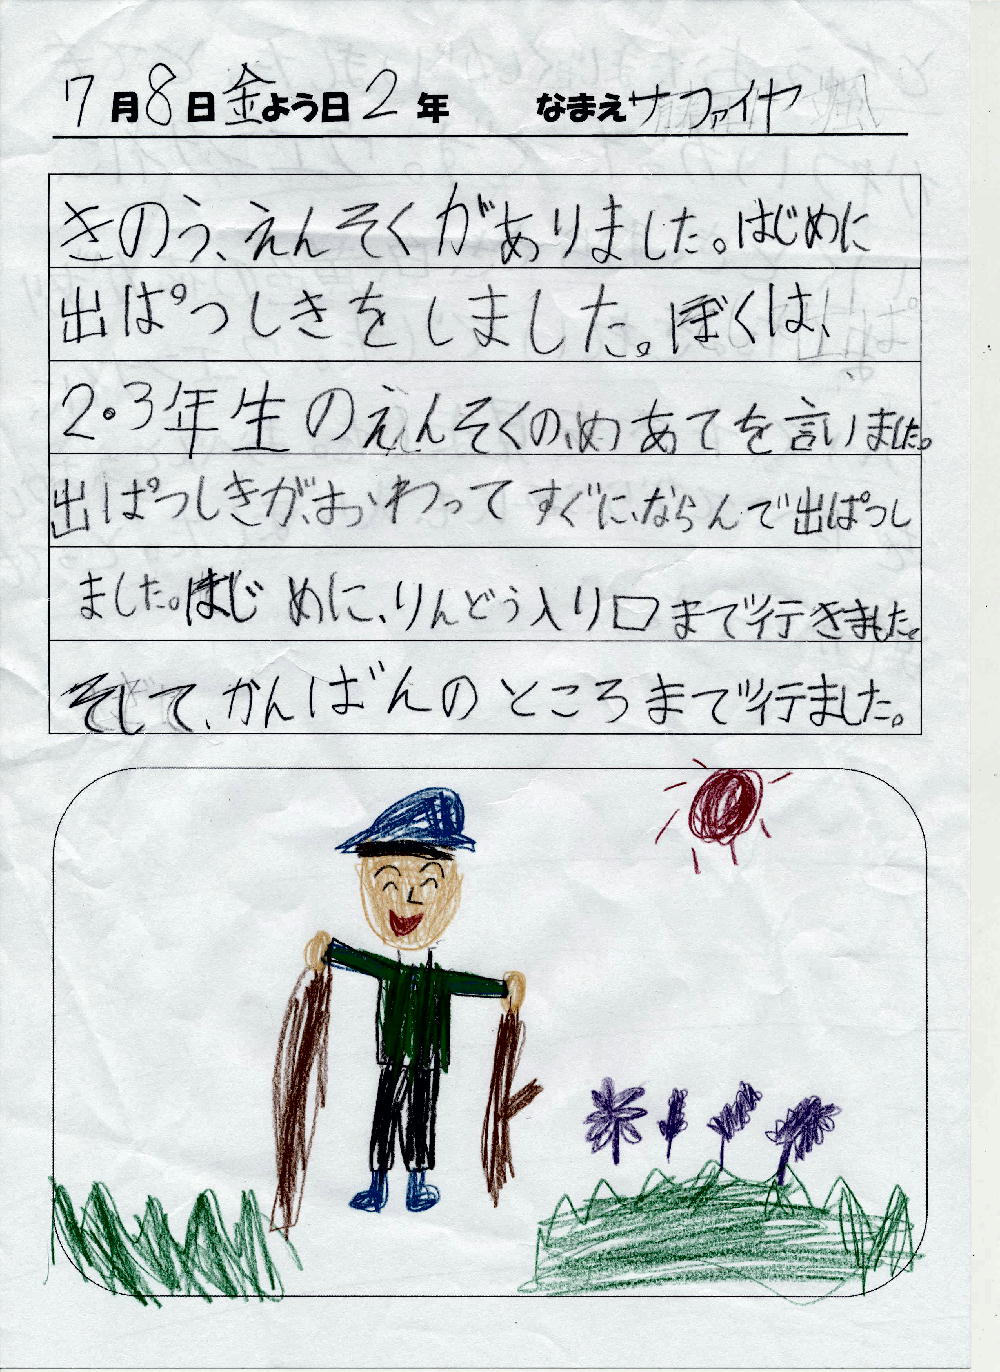 7月8日金よう日2年 なまえサファイヤ
きのう、えんそくがありました。はじめに
出ぱつしきをしました。ぼくは、
2・3年生のえんそくの、めあてを言いました。
出ぱつしきが、おわってすぐに、ならんで出ぱつし
ました。はじめに、りんどう入り口まで行きました。
そして、かんばんのところまで行ました。